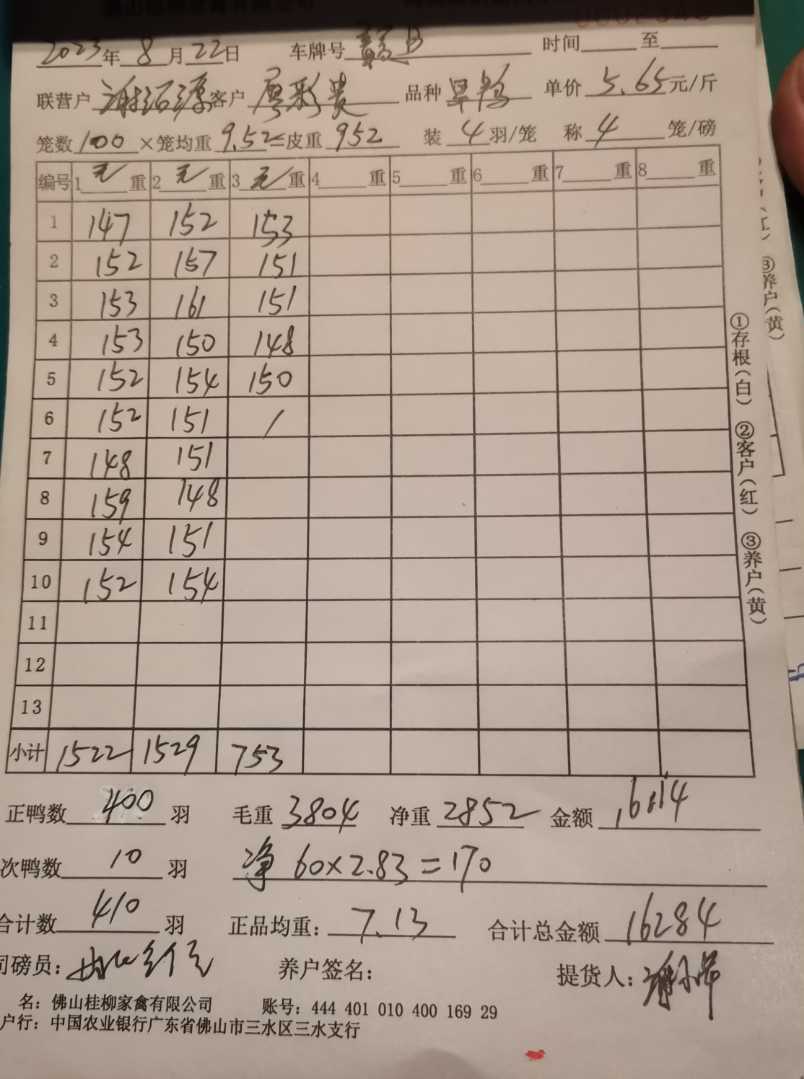 2023年8月22日 车牌号 B 时间 至
联营户 谢绍源 客户 廖彩贵 品种 旱鸭 单价 5.65元/斤
笼数100×笼均重9.52=皮重952 装4羽/笼 称4笼/磅
编号 1毛重 2毛重 3毛重 4重 5重 6重 7重 8重
1 147 152 153
2 152 157 151
3 153 161 151
4 153 150 148
5 152 154 150
6 152 151 /
7 148 151
8 159 148
9 154 151
10 152 154
11
12
13
小计 1522 1529 753
正鸭数 400 羽 毛重 3804 净重 2852 金额 16114
次鸭数 10 羽 净 60×2.83=170
合计数 410 羽 正品均重: 7.13 合计总金额 16284
司磅员: 养户签名: 提货人:
名: 佛山桂柳家禽有限公司 账号: 444 401 010 400 169 29
户行: 中国农业银行广东省佛山市三水区三水支行
①存根(白) ②客户(红) ③养户(黄)
③养户(黄)